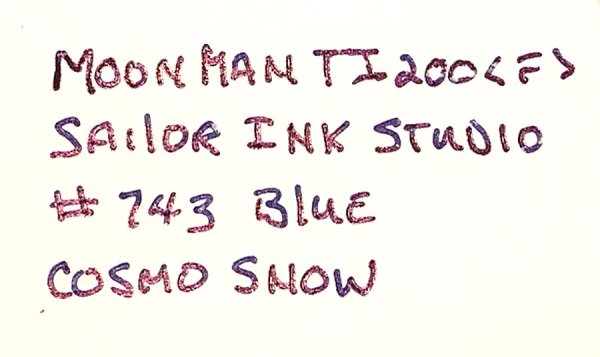 MOONMAN TI200<F>
SAILOR INK STUDIO
# 743 BLUE
COSMO SNOW